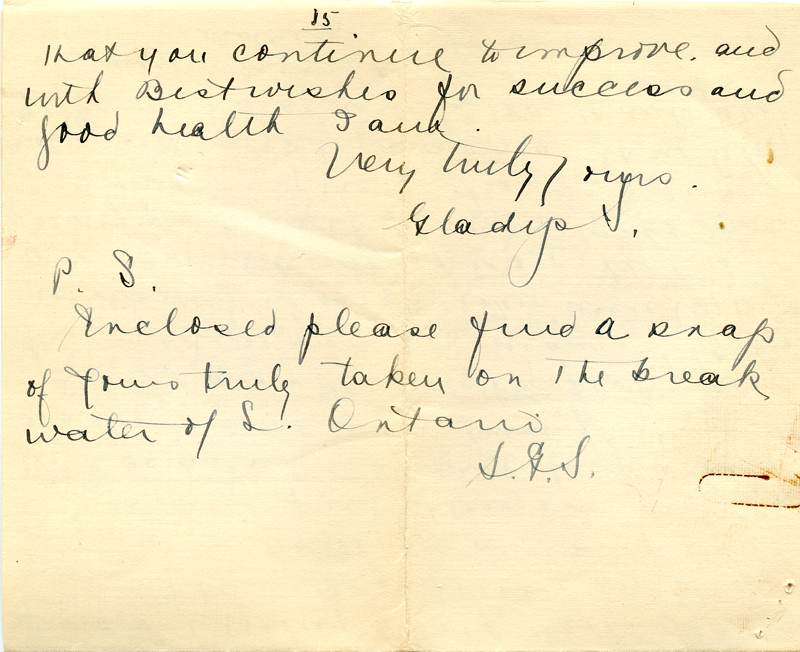 15
that you continue to improve. and
with Best wishes for success and
good health I am.
Very truly yours.
Gladys S.
P. S.
Enclosed please find a snap
of Yours truly taken on the break
water of L. Ontario
S.G.S.